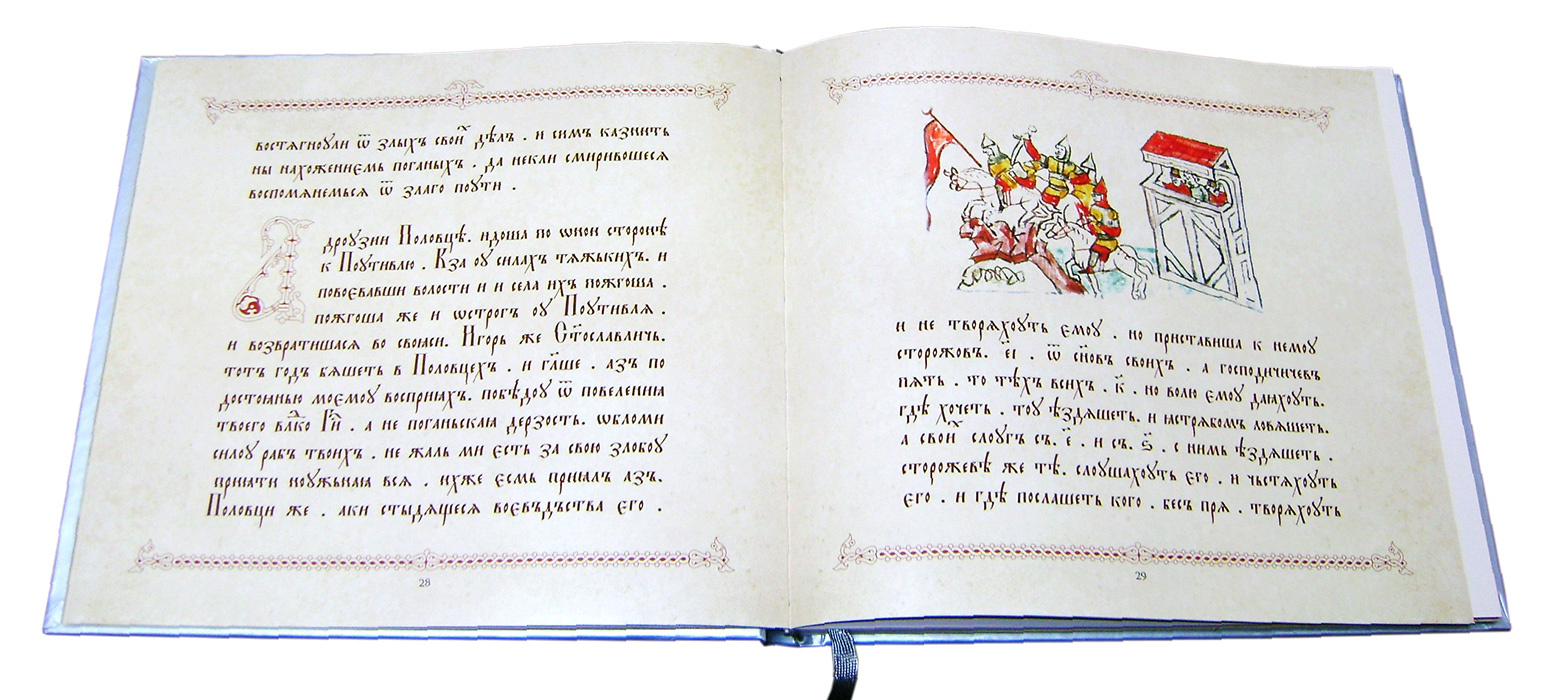 востягноули ѿ злыхъ своиⷯ дѣлъ . и симъ казнить
ны нахожениемь поганыхъ . да некли смиривошеся
воспомянемься ѿ злаго поути .
А дроузии Половцѣ. идоша по ѡнои сторонѣ
к Поутивлю . Кза оу силахъ тяжькихъ. и
повоєвавши волости и и села ихъ пожгоша .
пожгоша же и ѡстрогъ оу Поутивля .
и возвратишася во своꙗси. Игорь же Ст҃ославличь.
тотъ годъ бяшеть в Половцехъ . и гл҃ше . азъ по
достоꙗнью моємоу восприꙗхъ. побѣдоу ѿ повелениꙗ
твоего влⷣко Гⷭ҇и . а не поганьскаꙗ дерзость. ѡбломи
силоу рабъ твоихъ . не жаль ми єсть за свою злобоу
приꙗти ноужьнаꙗ вся . ихже єсмь приꙗлъ азъ.
Половци же . аки стыдящеся воєвъдъства єго .
28
и не творяхоуть ємоу . но приставиша к немоу
сторожовъ. е҃і . ѿ сн҃овъ своихъ . а господичичевъ
пять . то тѣхъ всихъ . к҃ . но волю ємоу даꙗхоуть.
гдѣ хочеть . тоу ѣздяшеть. и ꙗстрябомъ ловяшеть.
а своиⷯ слоугъ съ. е҃ . и съ. ѕ҃ . с нимь ѣздяшеть .
сторожевѣ же тѣ. слоушахоуть єго . и чьстяхоуть
єго . и гдѣ послашеть кого . бесъ пря . творяхоуть
29